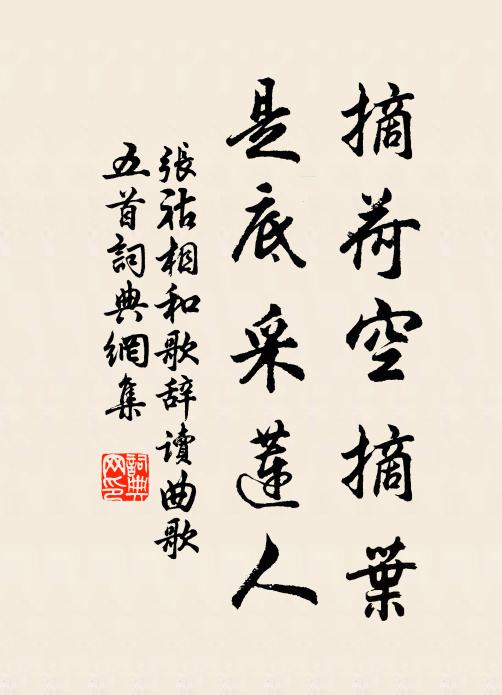 摘荷空摘葉
是底采蓮人
張祜相和歌辞讀曲歌
五首詞典網集
詞典
网印